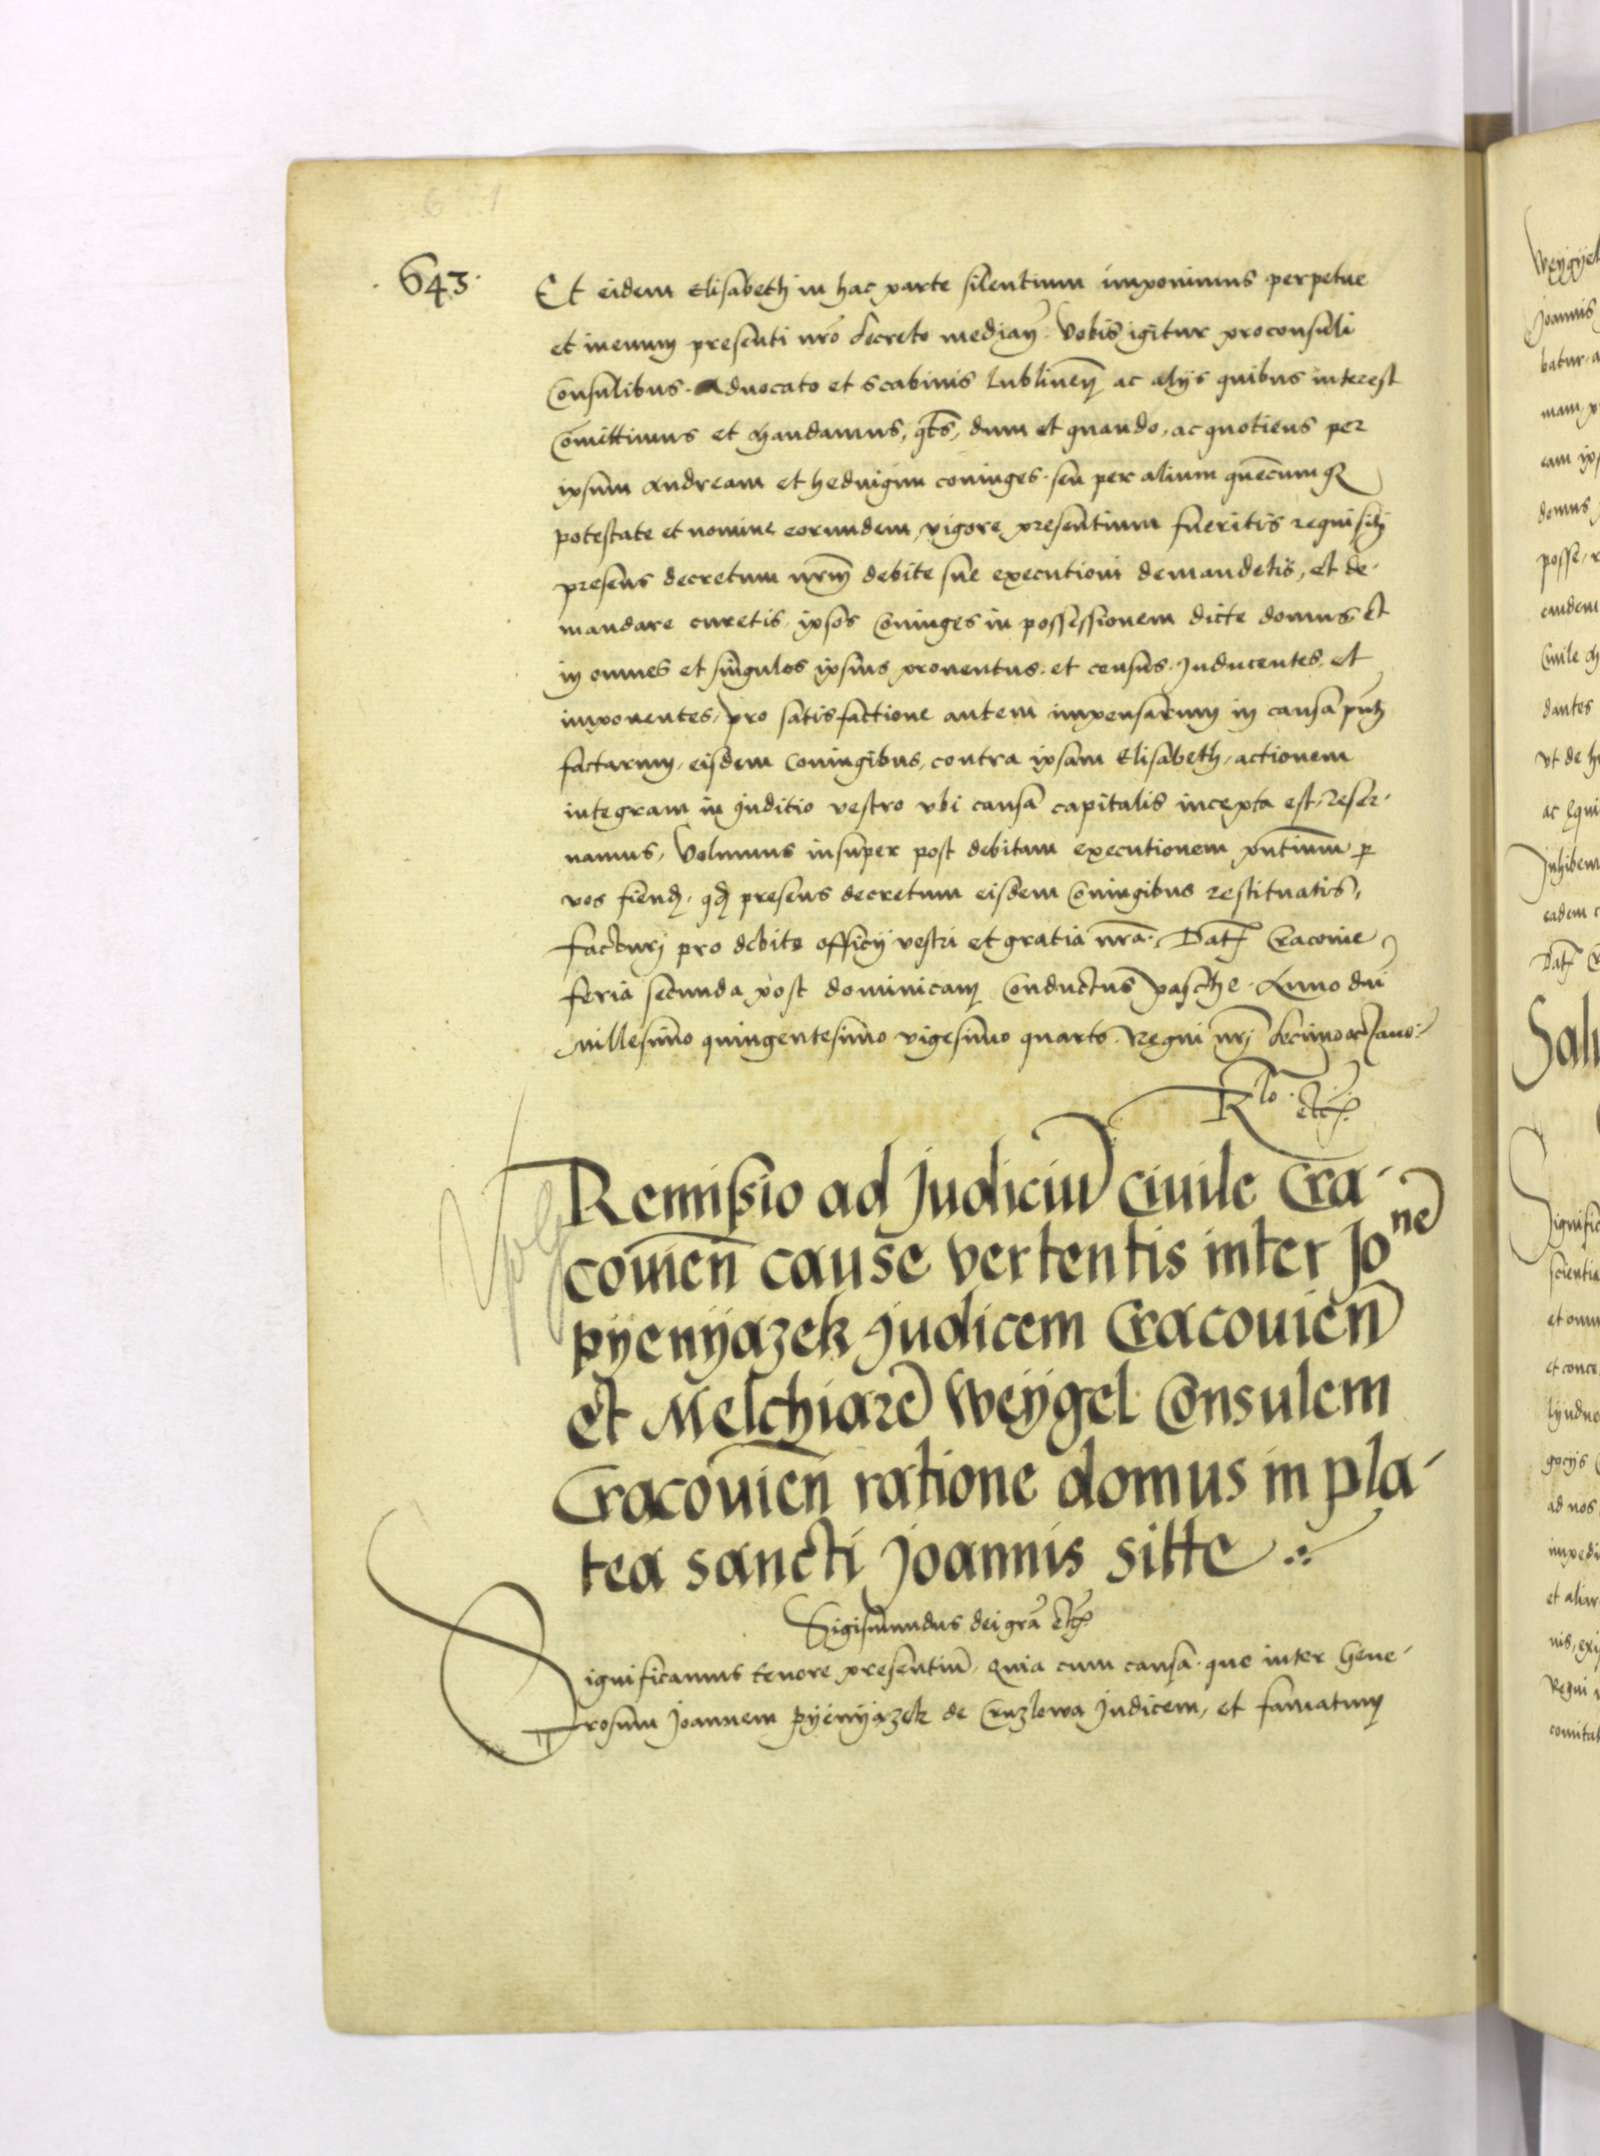 643
Et eidem Elisabeth in hac parte silentium imponimus perpetue
et in euum presenti nro decreto median. Vobis igitur proconsuli
Consulibus. Aduocato et Scabinis Lublinen ac alijs quibus interest
Comittimus et Mandamus, qts, dum et quando, ac quotiens per
ipsum Andream et heduigim coniuges seu per alium quemcumq
potestate et nomine eorundem, vigore presentium fueritis requisiti
presens decretum nrm debite sue executioni demandetis, et de-
mandare curetis, ipsos Coniuges in possessionem dicte domus et
in omnes et singulos ipsius prouentus et census Inducentes et
imponentes, pro satisfactione autem impensarum in causa pnti
factarum, eisdem Coniugibus, contra ipsam Elisabeth, actionem
integram in Juditio vestro vbi causa capitalis incepta est, reser-
uamus, Volumus insuper post debitam executionem pntium p
vos fiend, qd presens decretum eisdem Coniugibus restituatis,
facturi pro debito officij vestri et gratia nra. Dat Cracouie
feria secunda post dominicam Conductus pasche. Anno dni
Millesimo quingentesimo vigesimo quarto. Regni nri decimooctauo.
Rlo. etc.
Remissio ad Judiciu Ciuile Cra-
couien cause vertentis inter Jone
pyenyazek Judicem Cracouien
Et Melchiare Weygel Consulem
Cracouien ratione domus in pla-
tea sancti Joannis sitte
Sigismundus dei gra etc
Significamus tenore presentiu. Quia cum causa. que inter Gene-
rosum Joannem pyenyazek de Cruzlowa Judicem, et famatum